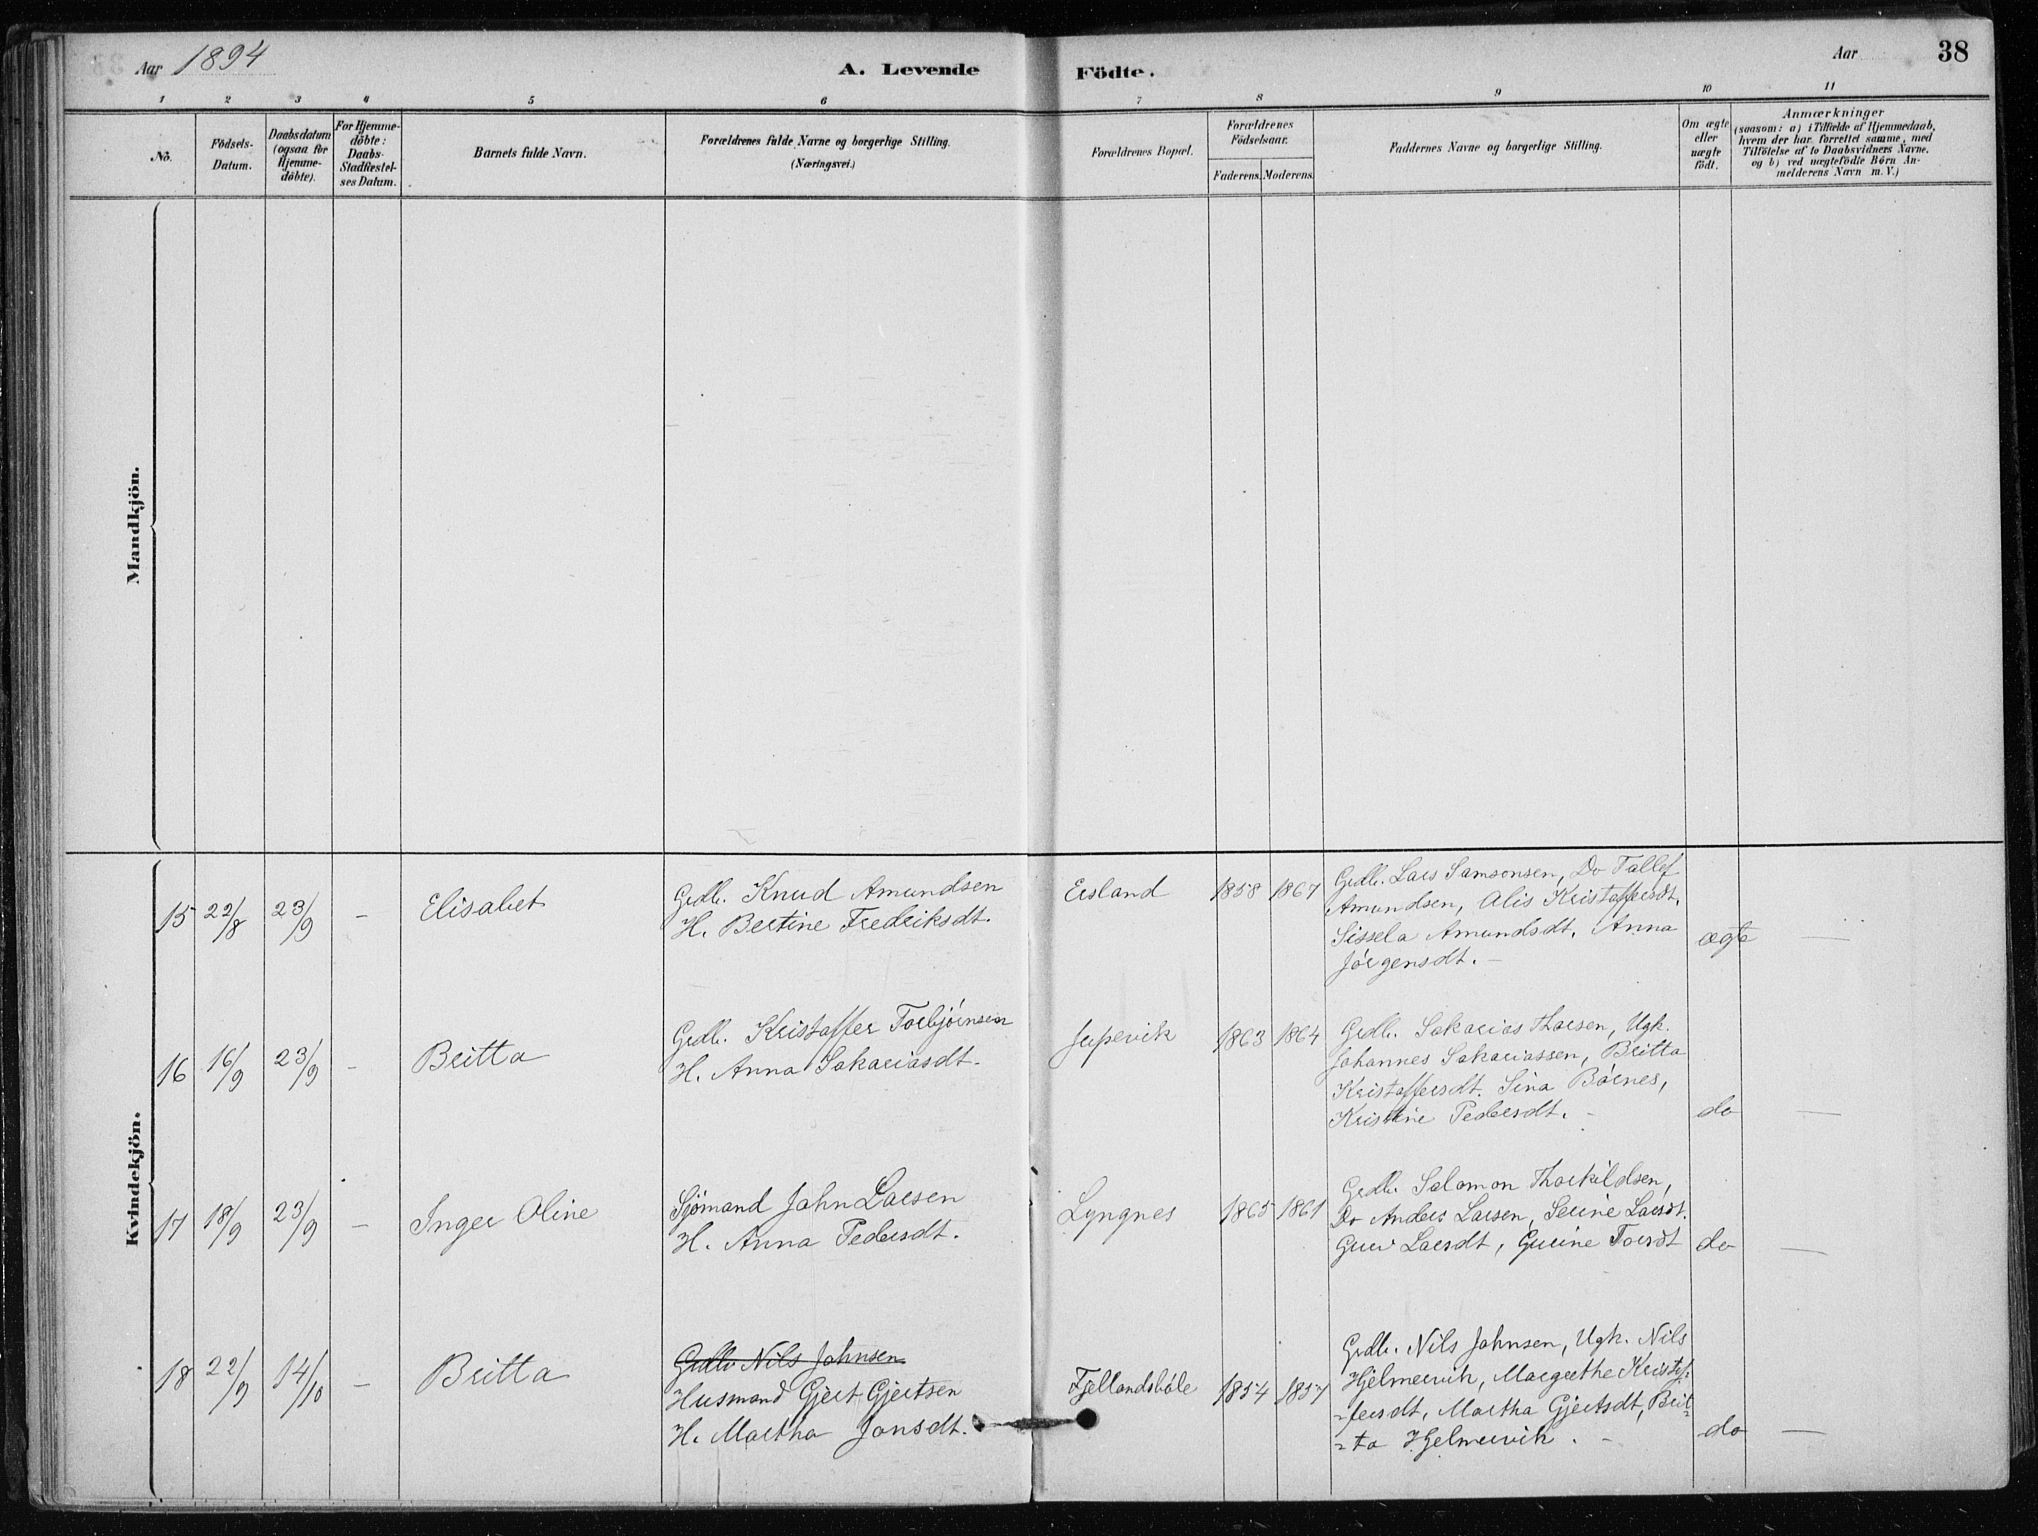 Aar 1894
A. Levende Födte.
Aar
38
1 2 3 4 5 6 7 8 9 10 11
No.
Födsels-
Datum.
Daabsdatum
(ogsaa for
Hjemme-
döbte).
For Hjemme-
döbte:
Daabs-
Stadfæstel-
ses Datum.
Barnets fulde Navn.
Forældrenes fulde Navne og borgerlige Stilling.
(Næringsvei.)
Forældrenes Bopæl.
Forældrenes
Födselsaar.
Faderens. Moderens.
Faddernes Navne og borgerlige Stilling.
Om ægte
eller
uægte
födt.
Anmærkninger
(saasom: a) i Tilfælde af Hjemmedaab,
hvem der har forrettet samme, med
Tilföielse af to Daabsvidners Navne,
og b) ved uægtefödte Börn An-
melderens Navn m. V.)
Mandkjön.
Kvindekjön.
15 22/8 23/9 – Elisabet
Grdbr. Knud Amundsen
H. Bertine Fredriksdt.
Ersland 1858 1867
Grdbr. Lars Samsonsen, Do Tallef
Amundsen, Alis Kristoffersdt,
Sissela Amundsdt. Anna
Jörgensdt. –
ægte —
16 16/9 23/9 – Britta
Grdbr. Kristoffer Torbjörnsen
H. Anna Sakariasdt.
Jupevik 1863 1864
Grdbr. Sakarias Thorsen, Ugk.
Johannes Sakariassen, Britta
Kristoffersdt. Sina Börnes,
Kristine Pedersdt. –
do —
17 18/9 23/9 – Inger Oline
Sjömand John Larsen
H. Anna Pedersdt.
Lyngnes 1865 1861
Grdbr. Salomon Thorkildsen,
Do Anders Larsen, Serine Larsdt.
Guri Larsdt, Gurine Toersdt
do —
18 22/9 14/10 – Britta
Grdbr Nils Johnsen
Husmand Gjert Gjertsen
H. Martha Jonsdt.
Fjellandsböle 1854 1857
Grdbr. Nils Johnsen, Ugk. Nils
Hjelmervik, Margrethe Kristof-
=fersdt, Martha Gjertsdt, Brit=
=ta Hjelmervik. –
do —